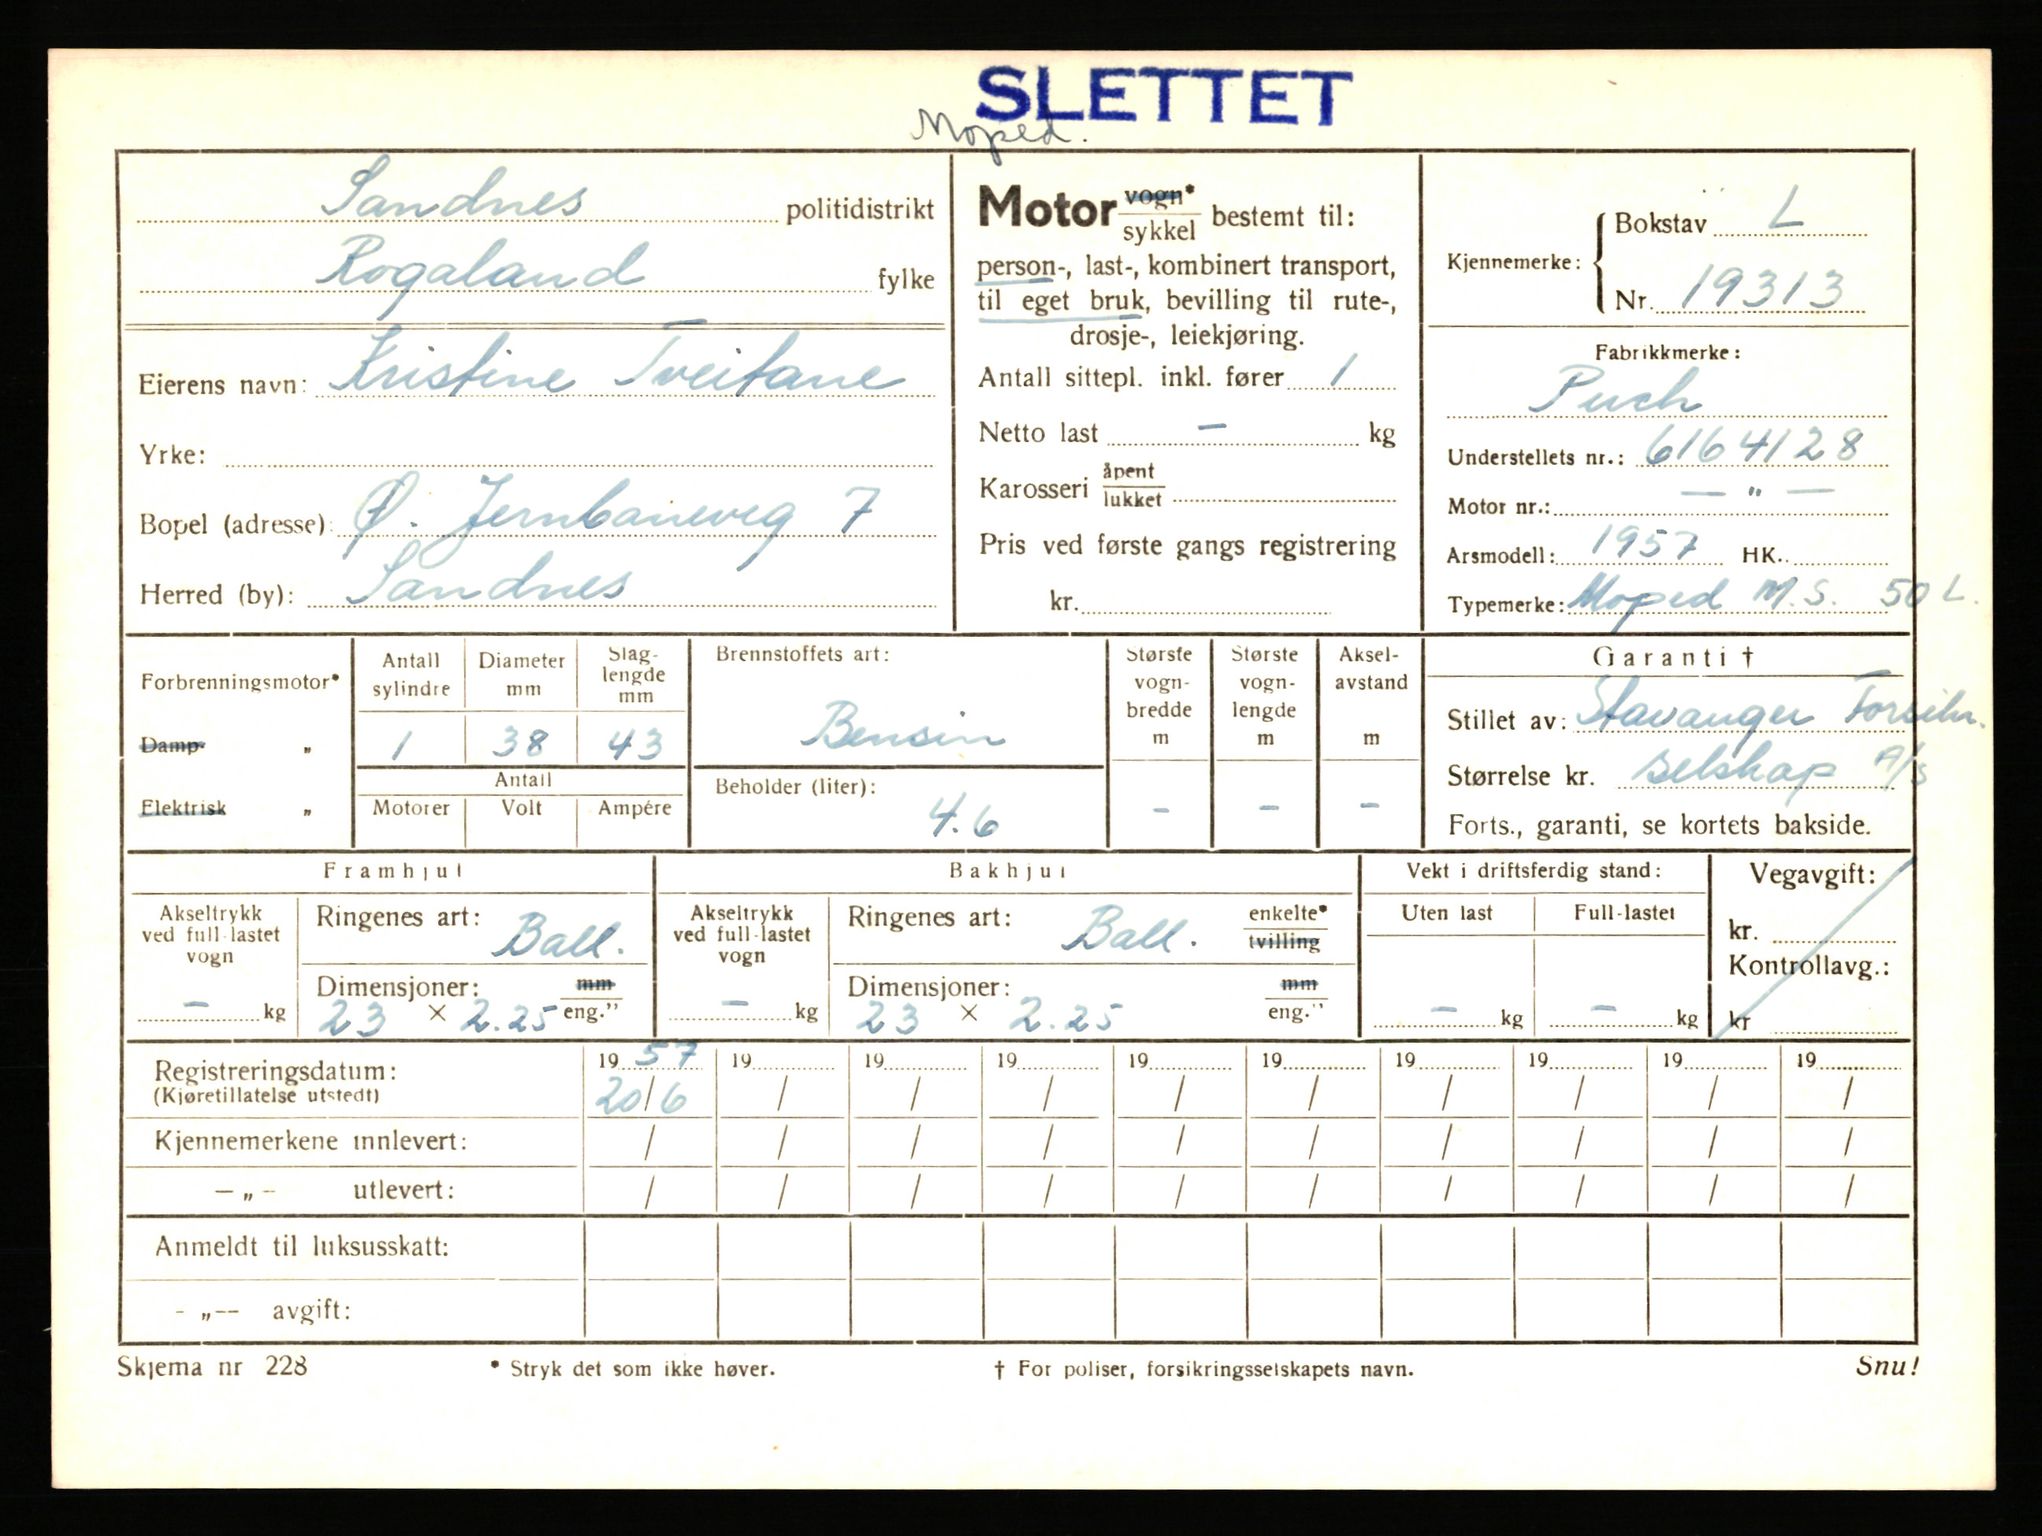 SLETTET
Moped.
Sandnes politidistrikt
Rogaland fylke
Eierens navn: Kristine Tveitane
Yrke:
Bopel (adresse): Ø. Jernbaneveg 7
Herred (by): Sandnes
Motor vogn* sykkel bestemt til:
person-, last-, kombinert transport,
til eget bruk, bevilling til rute-,
drosje-, leiekjøring.
Antall sittepl. inkl. fører 1
Netto last – kg
Karosseri åpent lukket
Pris ved første gangs registrering
kr.
Kjennemerke: Bokstav L
Nr. 19313
Fabrikkmerke:
Puch
Understellets nr.: 6164128
Motor nr.: — " —
Arsmodell: 1957 HK.
Typemerke: Moped M.S. 50 L.
Forbrenningsmotor*
Damp- „
Elektrisk „
Antall sylindre
Diameter mm
Slaglengde mm
1 38 43
Antall
Motorer Volt Ampére
Brennstoffets art:
Bensin
Beholder (liter):
4.6
Største vognbredde m
–
Største vognlengde m
–
Akselavstand m
–
Garanti †
Stillet av: Stavanger Forsikr.
Størrelse kr. selskap A/S
Forts., garanti, se kortets bakside.
Framhjul
Akseltrykk ved full-lastet vogn
– kg
Ringenes art: Ball.
Dimensjoner: mm
23 × 2.25 eng."
Bakhjul
Akseltrykk ved full-lastet vogn
– kg
Ringenes art: Ball. enkelte* tvilling
Dimensjoner: mm
23 × 2.25 eng."
Vekt i driftsferdig stand:
Uten last Full-lastet
– kg – kg
Vegavgift:
kr.
Kontrollavg.:
kr
Registreringsdatum: 19 57 19 19 19 19 19 19 19 19 19
(Kjøretillatelse utstedt) 20/6 / / / / / / / / /
Kjennemerkene innlevert: / / / / / / / / / /
— „ – utlevert: / / / / / / / / / /
Anmeldt til luksusskatt:
- „-- avgift:
Skjema nr 228 * Stryk det som ikke høver. † For poliser, forsikringsselskapets navn. Snu!